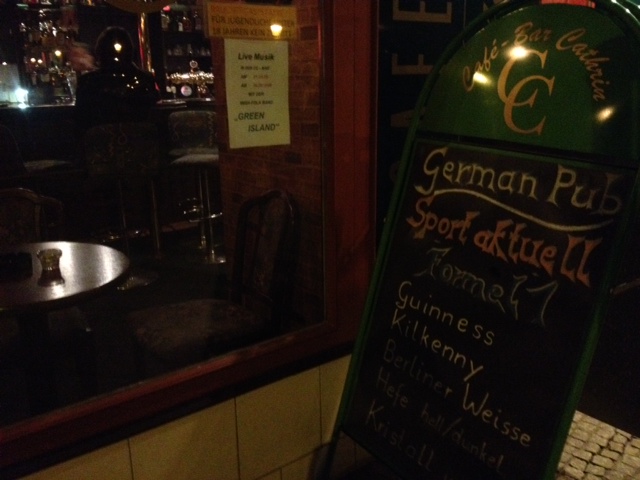 FÜR JUGENDLICHE UNTER
Live Musik
„GREEN
ISLAND"
Café-Bar Cathrin
CC
German Pub
Sport aktuell
Formel 1
Guinness
Kilkenny
Berliner Weisse
Hefe hell/dunkel
Kristall